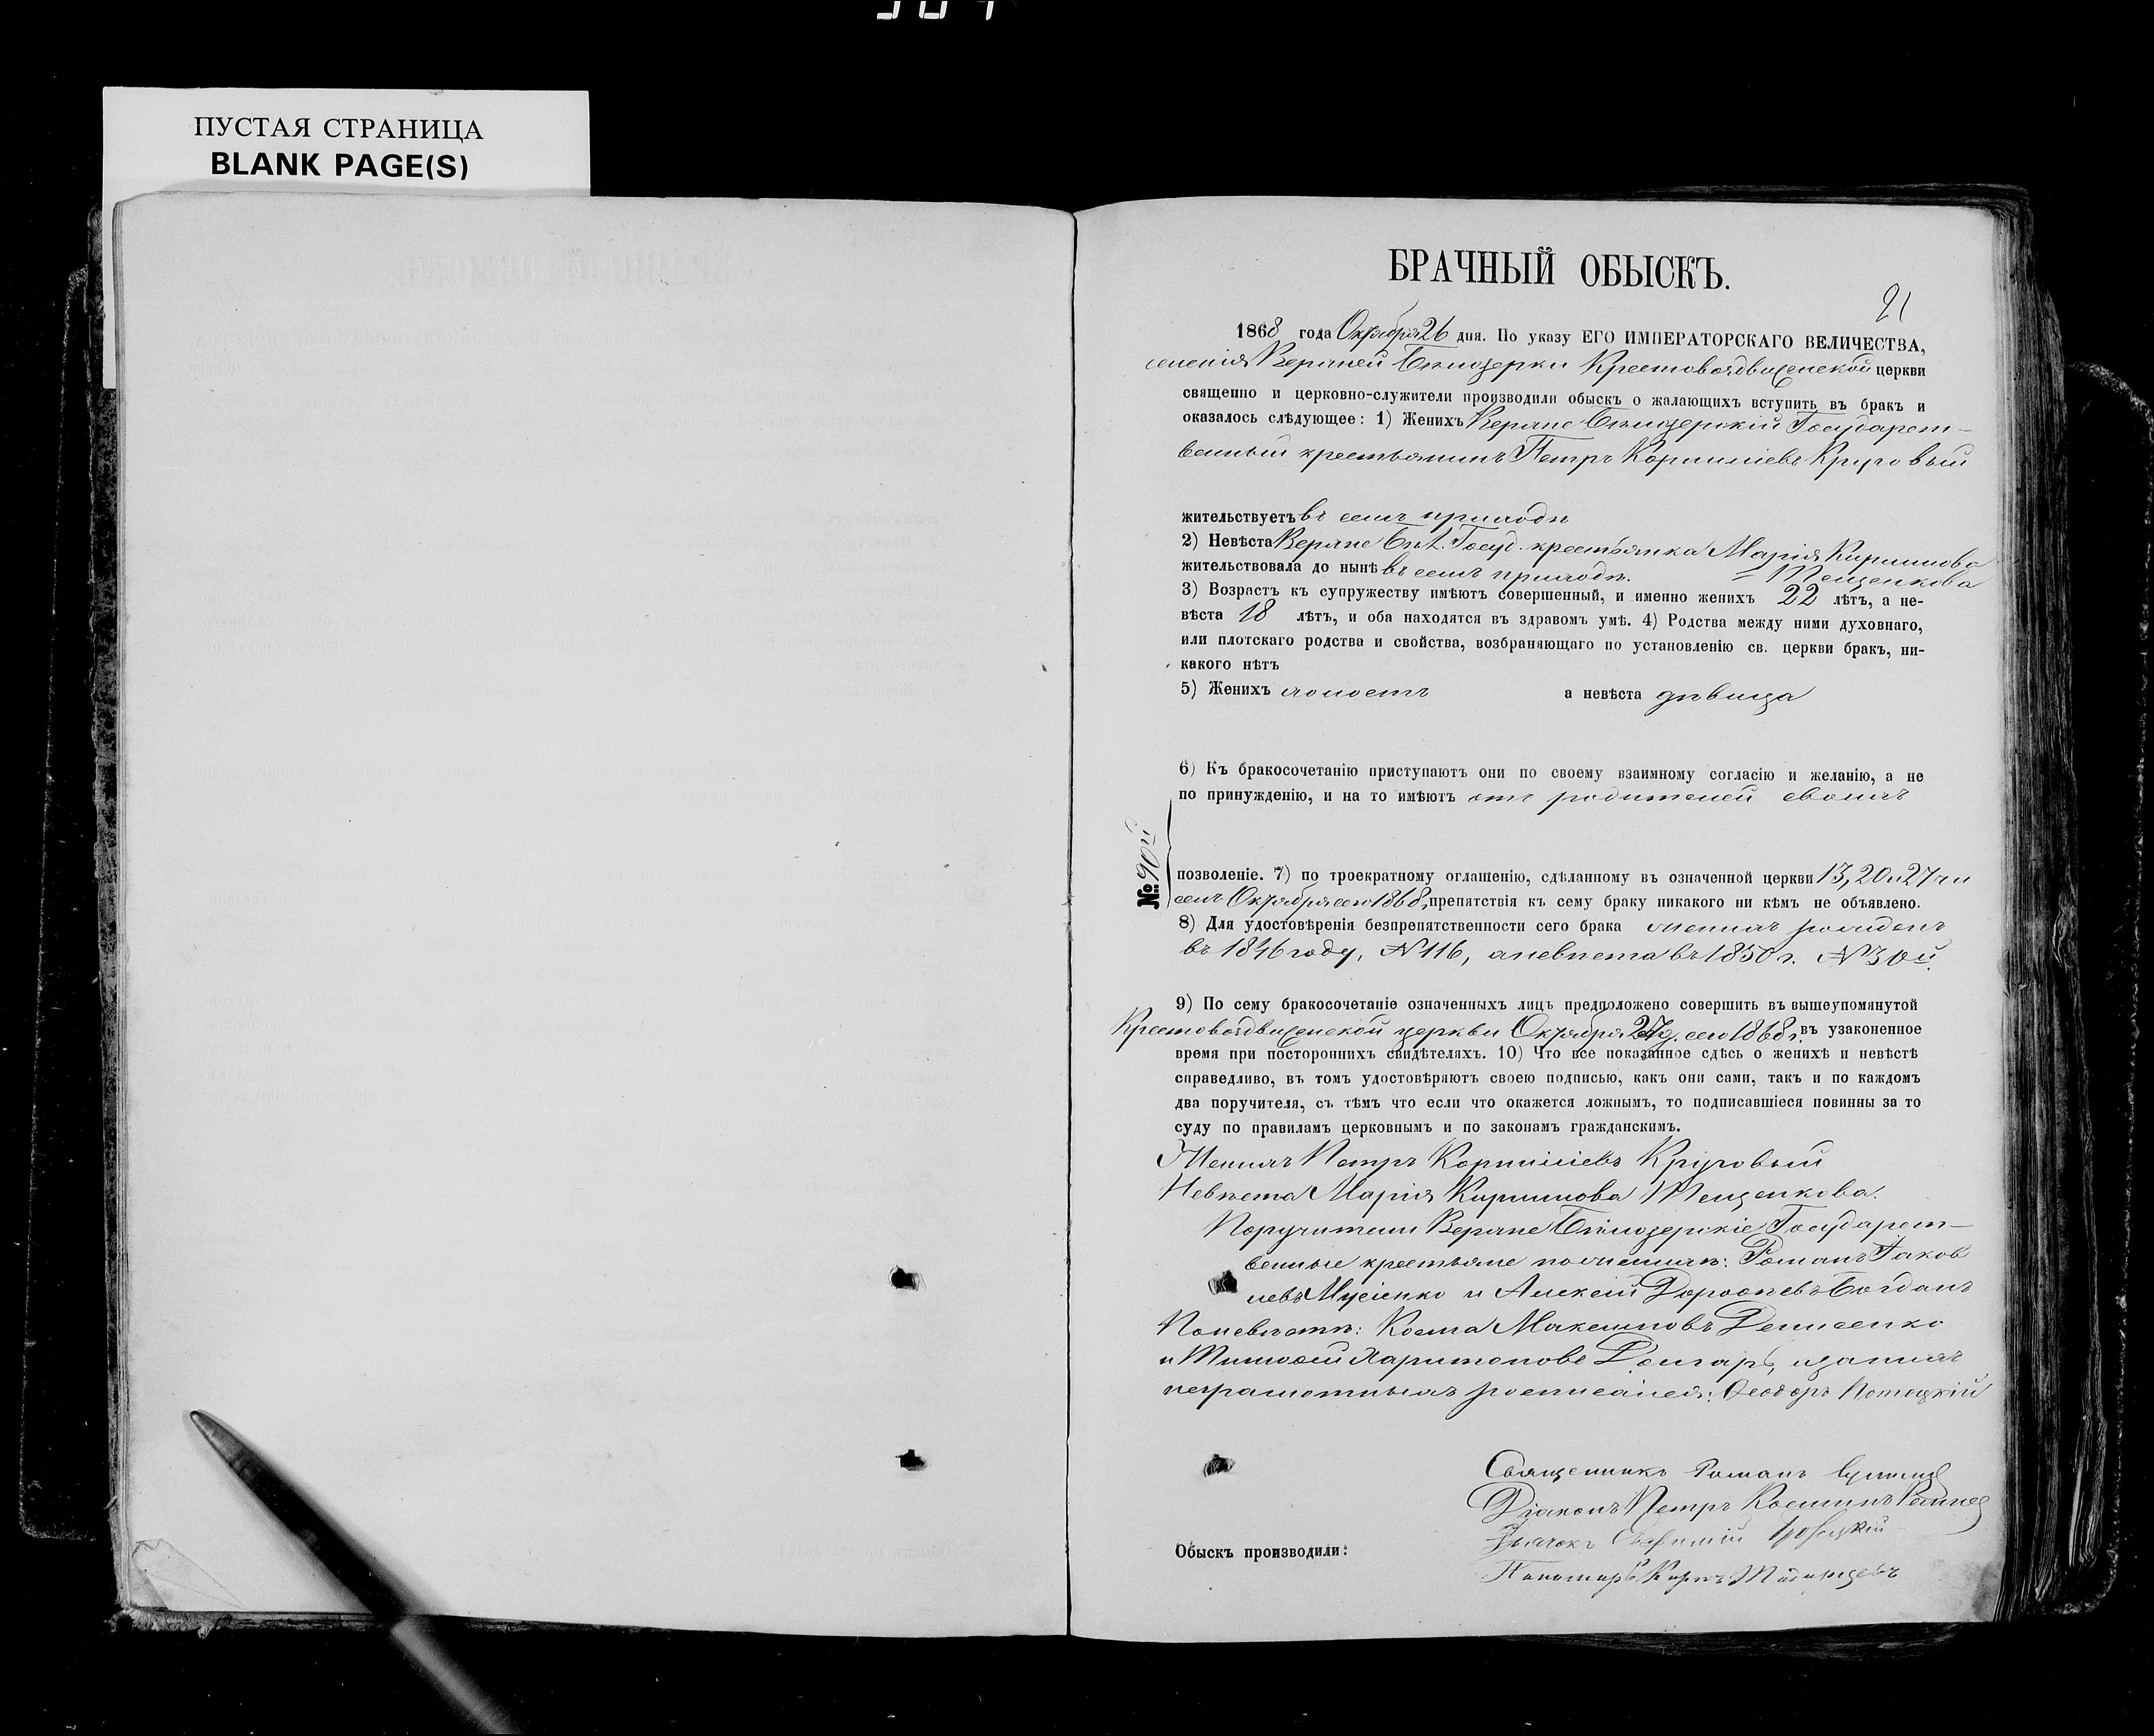 ПУСТАЯ СТРАНИЦА
BLANK PAGE(S)
БРАЧНЫЙ ОБЫСКЪ.
21
1868 года Октября 26 дня. По указу ЕГО ИМПЕРАТОРСКАГО ВЕЛИЧЕСТВА,
селенія Верхней Бѣлозерки Крестовоздвиженской церкви
священно и церковно-служители производили обыскъ о жалающихъ вступить въ бракъ и
оказалось слѣдующее: 1) Женихъ Верхне Бѣлозерскій Государст-
венный крестьянинъ Петръ Корниліевъ Круговый
жительствуетъ въ семъ приходѣ
2) Невѣста Верхне Бѣл. Госуд. крестьянка Марія Кирилова
жительствовала до нынѣ въ семъ приходѣ. = Тещенкова
3) Возрастъ къ супружеству имѣютъ совершенный, и именно женихъ 22 лѣтъ, а не-
вѣста 18 лѣтъ, и оба находятся въ здравомъ умѣ. 4) Родства между ними духовнаго,
или плотскаго родства и свойства, возбраняющаго по установленію св. церкви бракъ, ни-
какого нѣтъ
5) Женихъ холостъ а невѣста дѣвица
6) Къ бракосочетанію приступаютъ они по своему взаимному согласію и желанію, а не
по принужденію, и на то имѣютъ отъ родителей своихъ
№ 90й
позволеніе. 7) по троекратному оглашенію, сдѣланному въ означенной церкви 13, 20 и 27 чи
селъ Октября сего 1868, препятствія къ сему браку никакого ни кѣмъ не объявлено.
8) Для удостовѣренія безпрепятственности сего брака женихъ рожденъ
въ 1846 году, N 116, а невѣста въ 1850 г. N 30й.
9) По сему бракосочетаніе означенныхъ лицъ предположено совершить въ вышеупомянутой
Крестовоздвиженской церкви Октября 27 д. сего 1868 г. въ узаконенное
время при постороннихъ свидѣтеляхъ. 10) Что все показанное сдѣсь о женихѣ и невѣстѣ
справедливо, въ томъ удостовѣряютъ своею подписью, какъ они сами, такъ и по каждомъ
два поручителя, съ тѣмъ что если что окажется ложнымъ, то подписавшіеся повинны за то
суду по правиламъ церковнымъ и по законамъ гражданскимъ.
Женихъ Петръ Корниліевъ Круговый
Невѣста Марія Кирилова Тещенкова.
Поручители Верхне Бѣлозерскіе Государст-
венные крестьяне по женихѣ: Романъ Іаков
левъ Мусіенко и Алексій Дороѳѣевъ Богданъ
По невѣстѣ: Косма Максимовъ Денисенко
и Тимоѳей Харитоновъ Бондарь, и за нихъ
неграмотныхъ росписался: Ѳеодоръ Потоцкій
Священникъ Романъ
Діаконъ Петръ Косминъ
Дьячокъ
Обыскъ производили:
Пономарь Карпъ